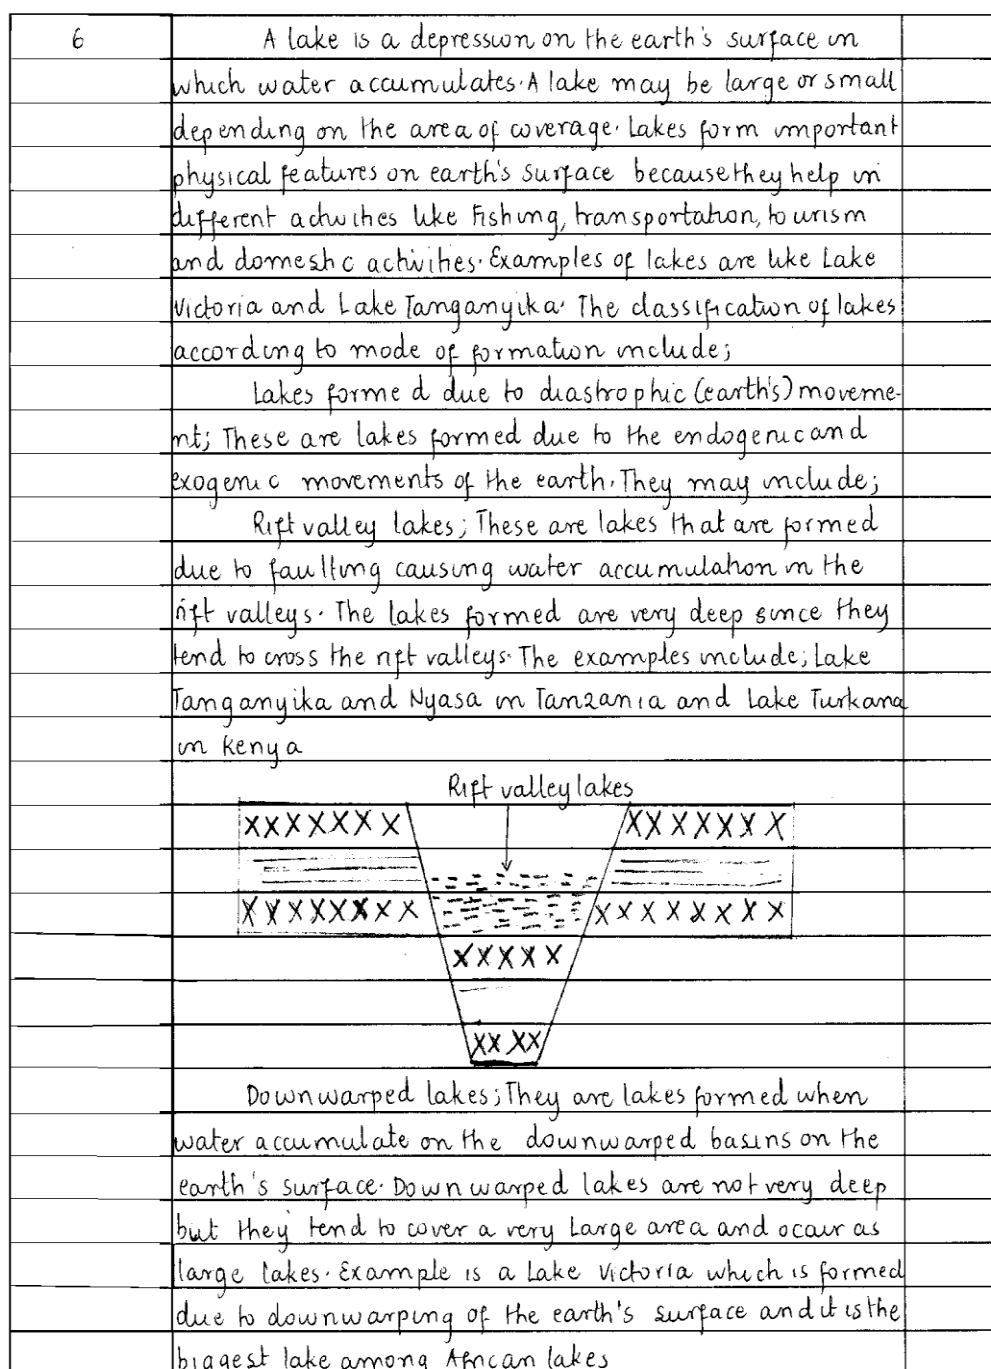 6
A lake is a depression on the earth's surface in
which water accumulates. A lake may be large or small
depending on the area of coverage. Lakes form important
physical features on earth's surface because they help in
different activities like Fishing, transportation, tourism
and domestic activities. Examples of lakes are like Lake
Victoria and Lake Tanganyika. The classification of lakes
according to mode of formation include;
Lakes formed due to diastrophic (earth's) moveme-
nt; These are lakes formed due to the endogenic and
exogenic movements of the earth. They may include;
Rift valley lakes; These are lakes that are formed
due to faulting causing water accumulation in the
rift valleys. The lakes formed are very deep since they
tend to cross the rift valleys. The examples include; Lake
Tanganyika and Nyasa in Tanzania and Lake Turkana
in Kenya
Rift valley lakes
XXXXXXX XXXXXXX
XXXXXXXX XXXXXXXX
XXXXX
XXXX
Downwarped lakes; They are lakes formed when
water accumulate on the downwarped basins on the
earth's surface. Downwarped lakes are not very deep
but they tend to cover a very large area and occur as
large lakes. Example is a Lake Victoria which is formed
due to downwarping of the earth's surface and it is the
biggest lake among African lakes